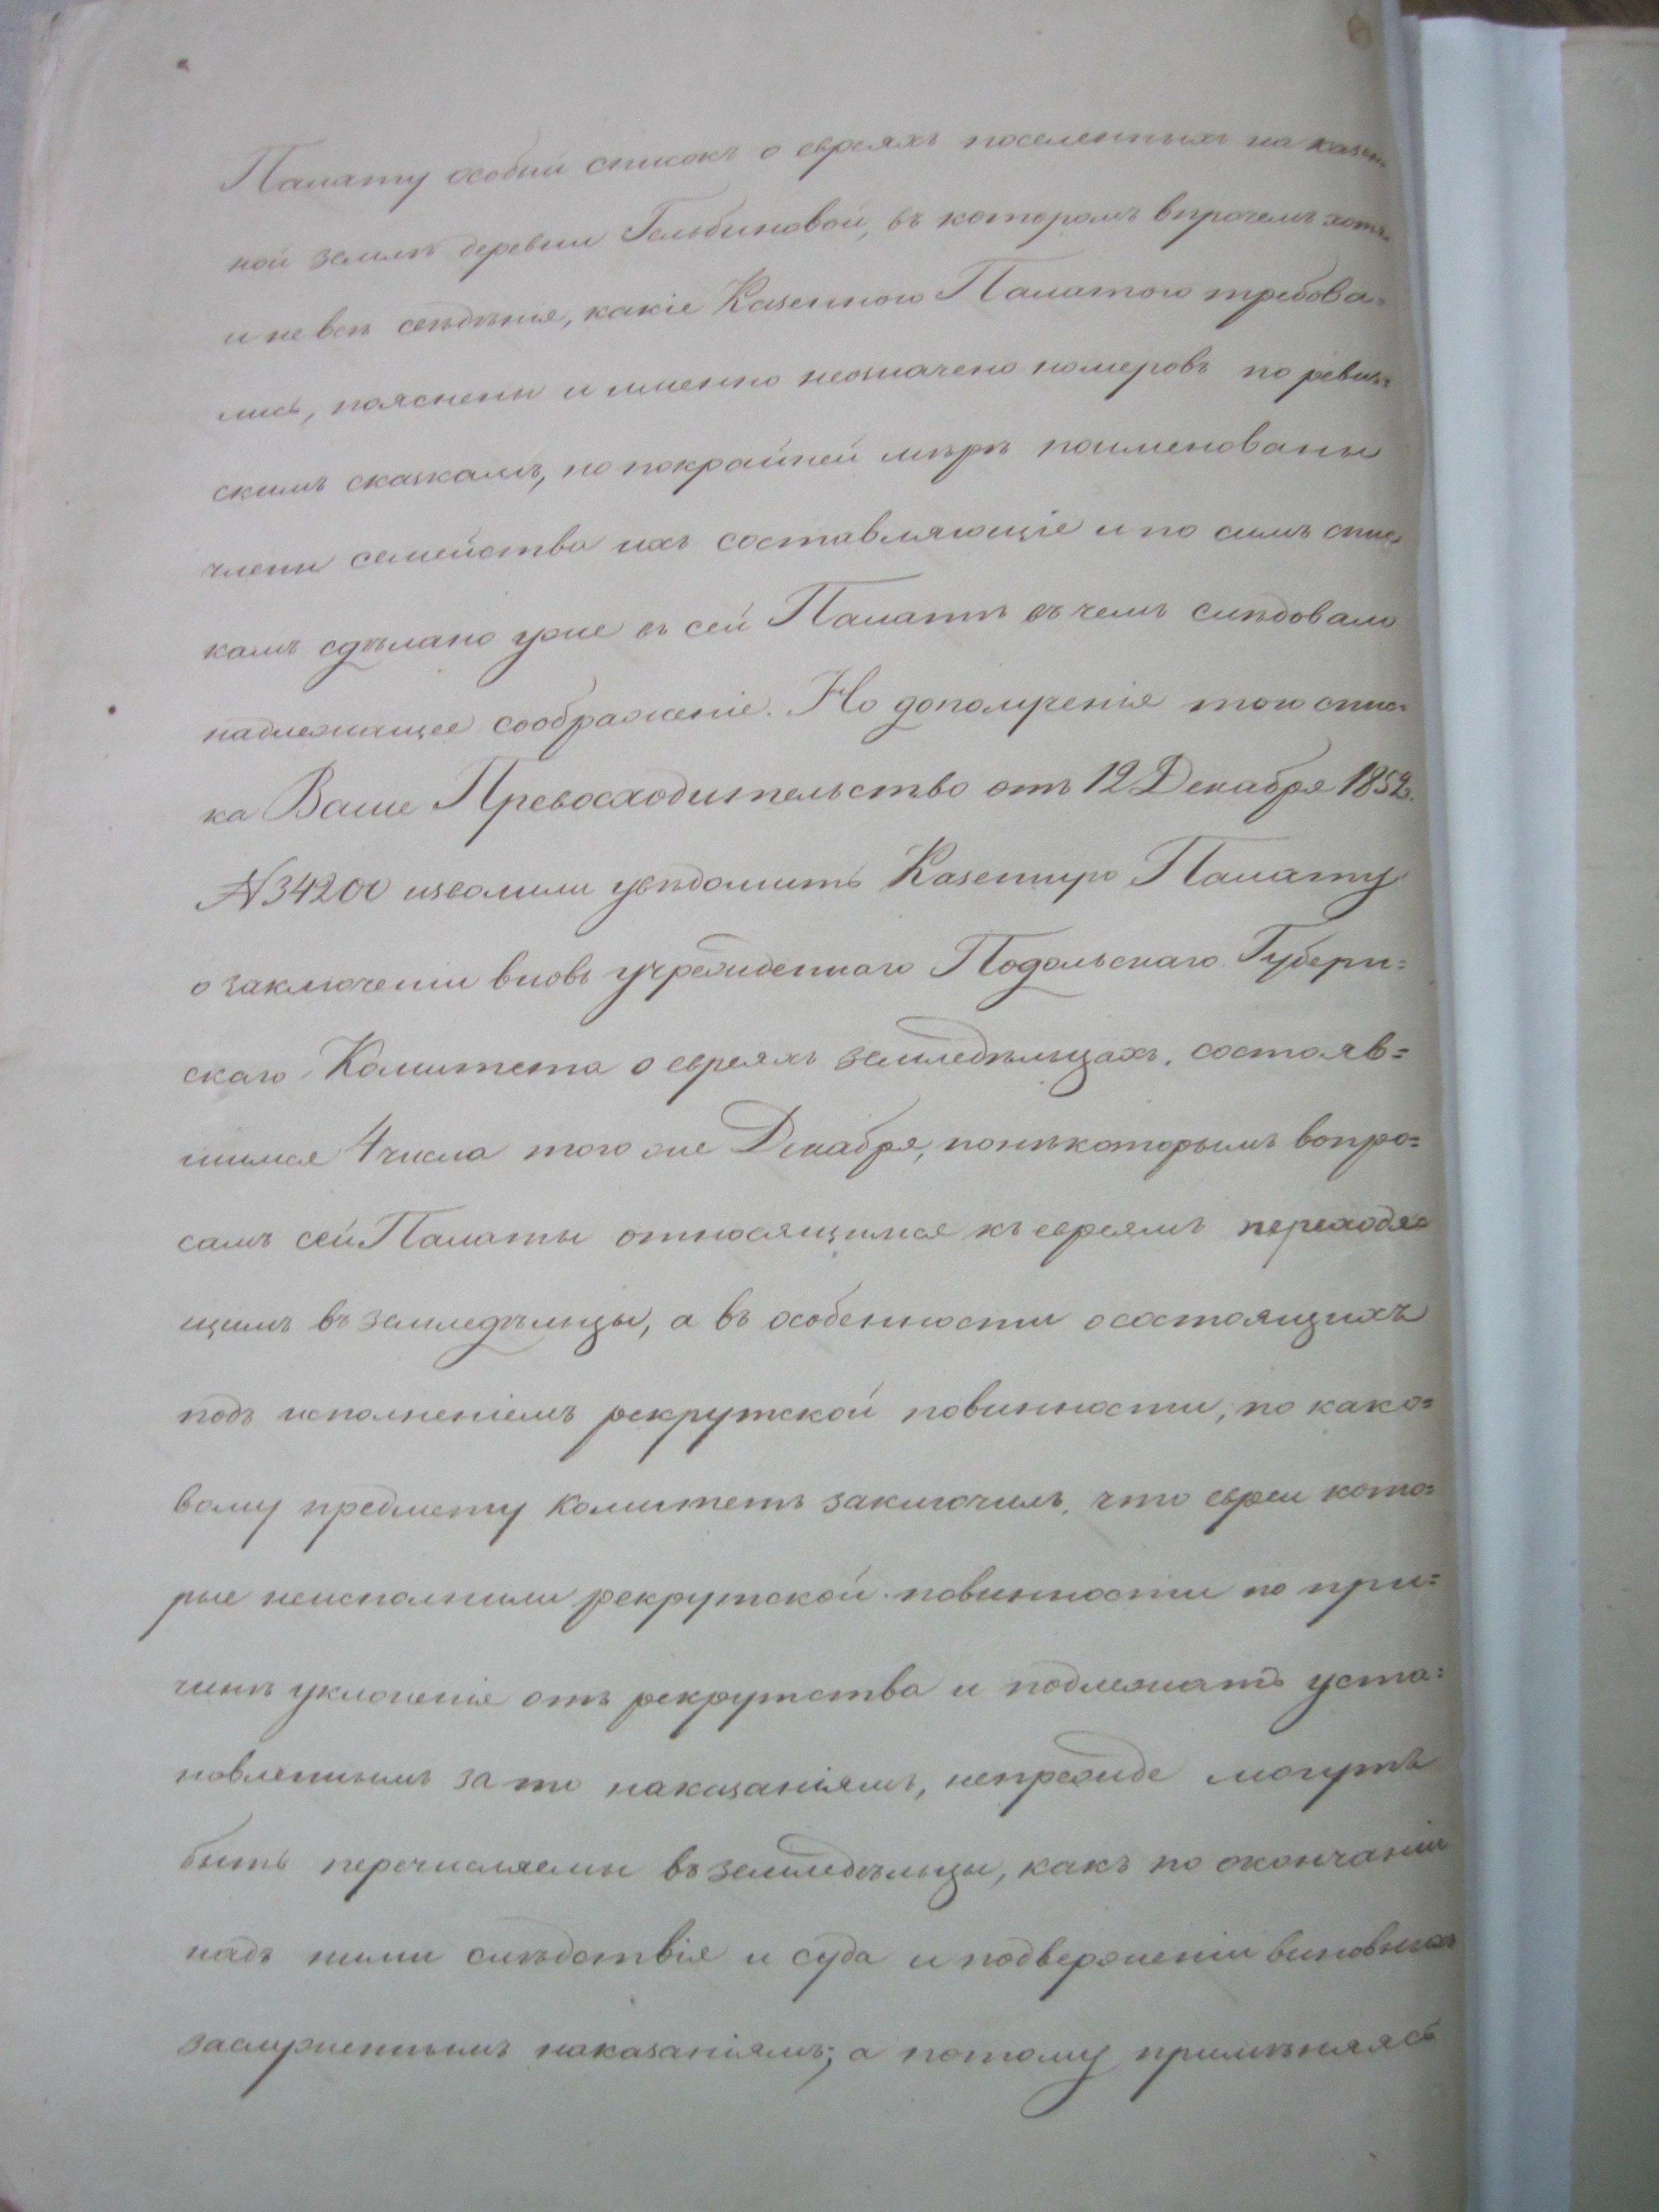 Палату особый списокъ о евреяхъ поселенныхъ на казен-
ной землѣ деревни Гельбиновой, въ которомъ впрочемъ хотя
и не всѣ свѣдѣнія, какіе Казенною Палатою требова=
лись, пояснены и именно неозначено номеровъ по ревиз=
скимъ сказкамъ, но покрайней мѣрѣ поименованы
члены семейства ихъ составляющіе и по симъ спис
камъ сдѣлано уже въ сей Палатѣ въ чемъ слѣдовало
надлежащее соображеніе. Но дополученія того спис=
ка Ваше Превосходительство отъ 12 Декабря 1852.
№ 34200 изволили увѣдомить Казенную Палату
о заключеніи вновь учрежденнаго Подольскаго Губерн=
скаго Комитета о евреяхъ земледѣльцахъ, состояв=
шимся 4 числа того же Декабря, понѣкоторымъ вопро=
самъ сей Палаты относящимся къ евреямъ переходя=
щимъ въ земледѣльцы, а въ особенности осостоящихъ
подъ исполненіемъ рекрутской повинности, по како=
вому предмету Комитетъ заключилъ, что евреи кото=
рые неисполнили рекрутской повинности по при=
чинѣ уклоненія отъ рекрутства и подлежатъ уста=
новленнымъ за то наказаніямъ, непрежде могутъ
быть перечисляемы въ земледѣльцы, какъ по окончаніи
надъ ними слѣдствія и суда и подверженіи виновныхъ
заслуженнымъ наказаніямъ; а потому примѣняясь